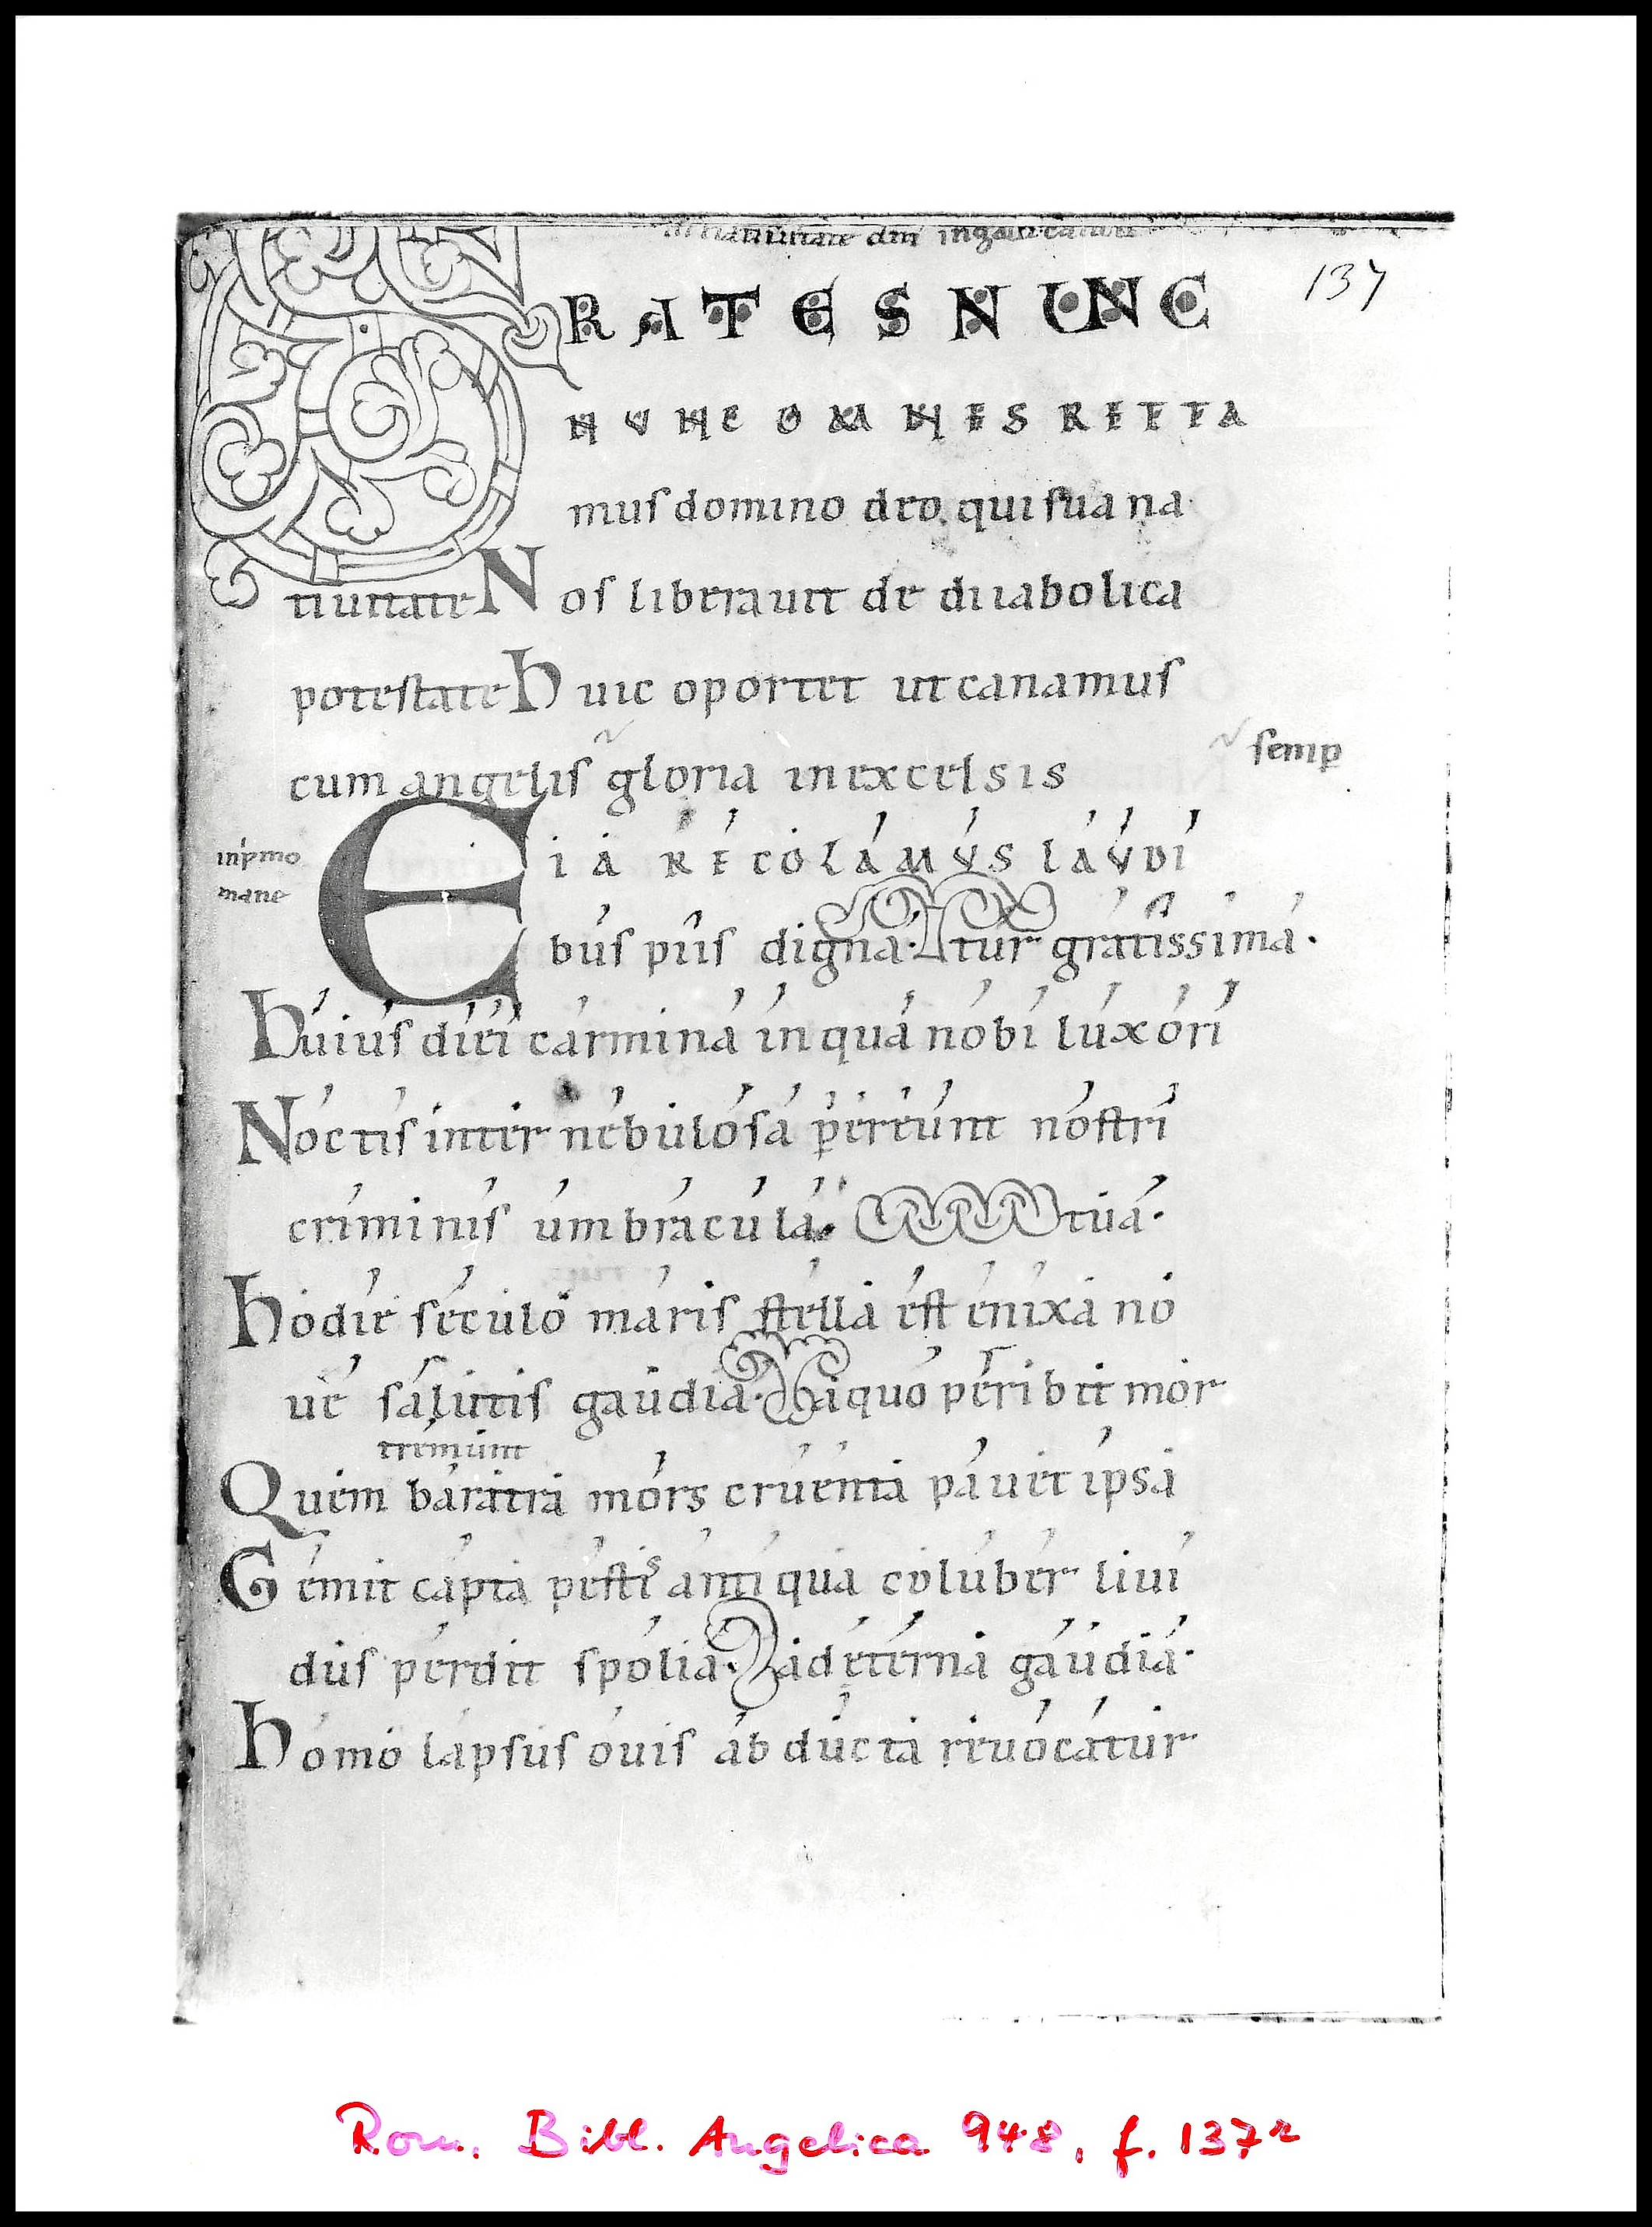 natiuitate dni in galli cantu
137
GRATES NUNC
NUNC OMNES REDDA
mus domino deo qui sua na
tiuitate Nos liberauit de diiabolica
potestate Huic oportet ut canamus
cum angelis gloria in excelsis
semp
in pmo
mane
EIA RECOLAMUS LAUDI
bus piis digna. tur gratissima.
Huius diei carmina in qua nobi lux ori
Noctis inter nebulosa pereunt nostri
criminis umbracula. tua.
Hodie seculo maris stella est enixa no
ue salutis gaudia. a quo peribit mor
tremunt
Quem baratra mors cruenta pauet ipsa
Gemit capta pestis antiqua coluber liui
dus perdit spolia. ad eterna gaudia.
Homo lapsus ouis abducta reuocatur
Rom. Bibl. Angelica 948, f. 137r